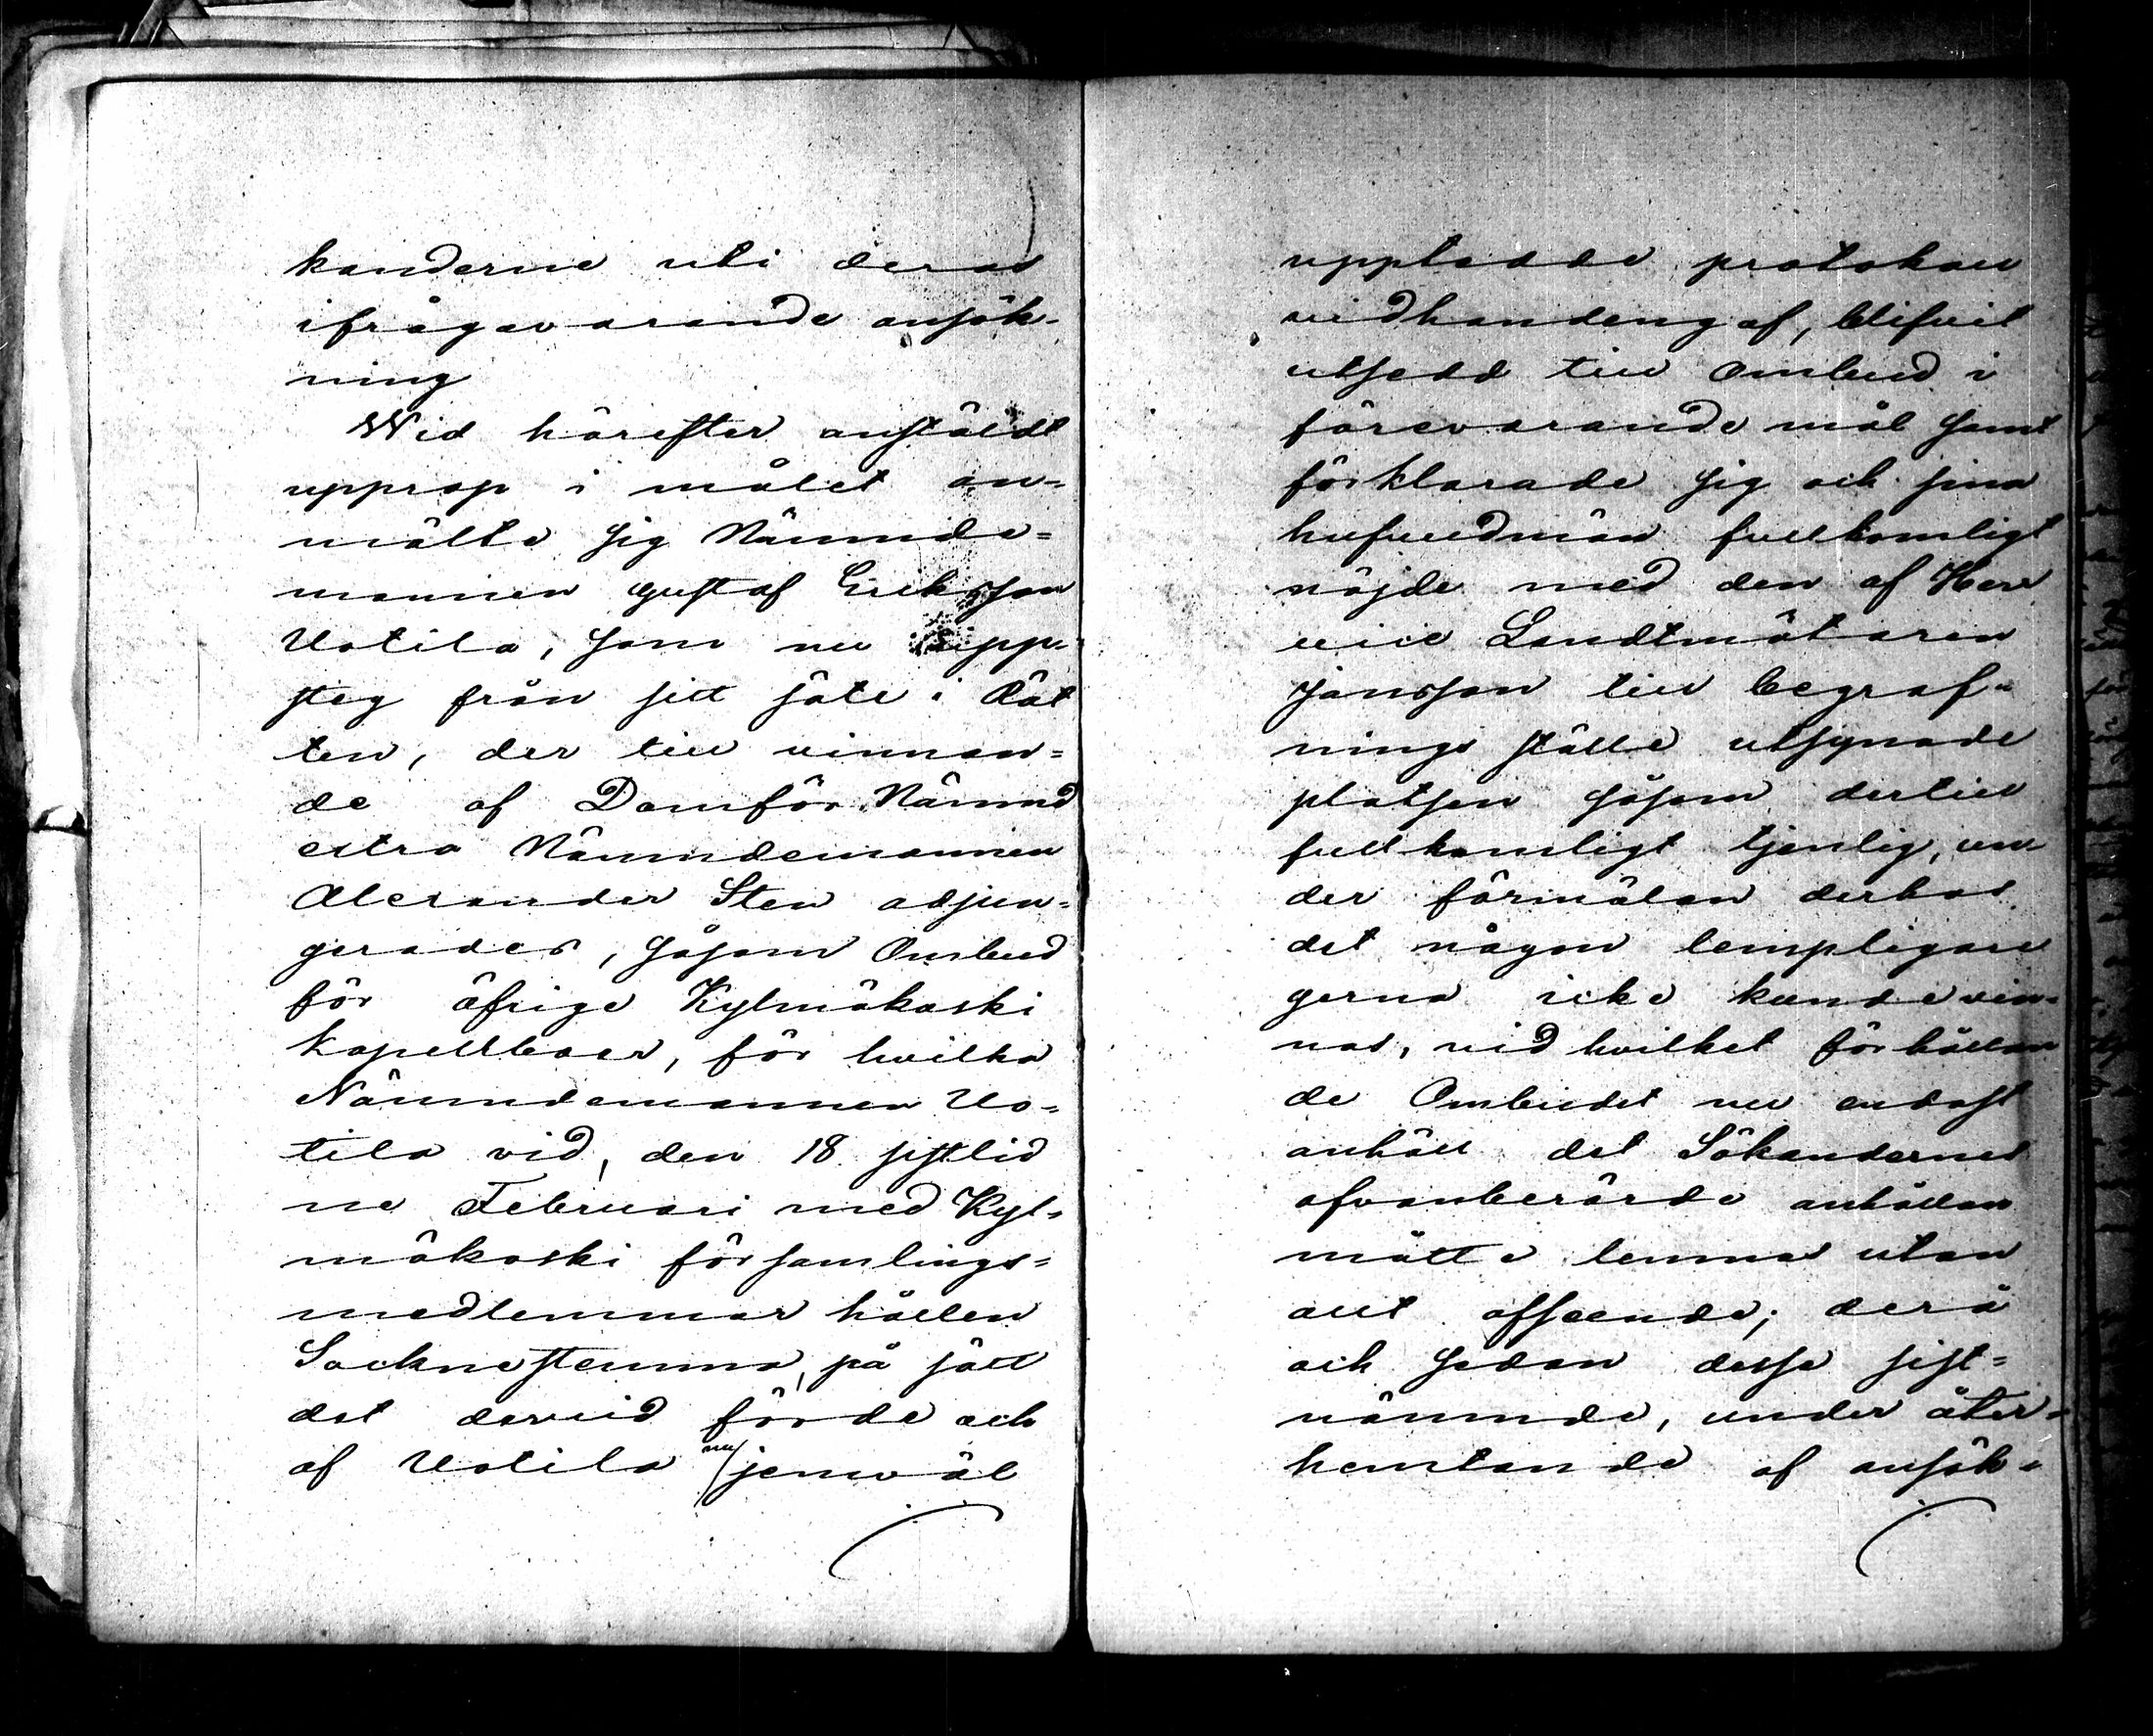 kanderne uti deras
ifrågavarande ansök-
ning
Wid härefter anstäldt
upprop i målet an-
mälte sig Nämnde-
mannen Gustaf Eriksson
Uotila, som nu upp-
steg från sitt säte i Rät
ten, der till vinnan-
de af Domför Nämnd
extra Nämndemannen
Alexander Sten adjun-
gerades, såsom Ombud
för öfrige Kylmäkoski
kapellboer, för hvilka
Nämndemannen Uo-
tila vid, den 18 sistlid
ne Februari med Kyl-
mäkoski församlings-
medlemmar hållen
Socknestemma, på sätt
det dervid förde och
af Uotila nu jemväl
upptedde protokoll
vidhandengaf, blifvit
utsedd till Ombud i
förevarande mål samt
förklarade sig och sina
hufvudmän fullkomligt
nöjde med den af Herr
vice Landtmätaren
Jansson till begraf-
nings ställe utsynade
platsen såsom dertill
fullkomligt tjenlig, un
der förmälan derhos
det någon lempligare
gerna icke kunde vin-
nas, vid hvilket förhållan
de Ombudet nu endast
anhöll det Sökandernes
ofvanberörde anhållan
måtte lemnas utan
allt afseende; derå
och sedan desse sist-
nämnde, under åter-
hemtande af ansök-